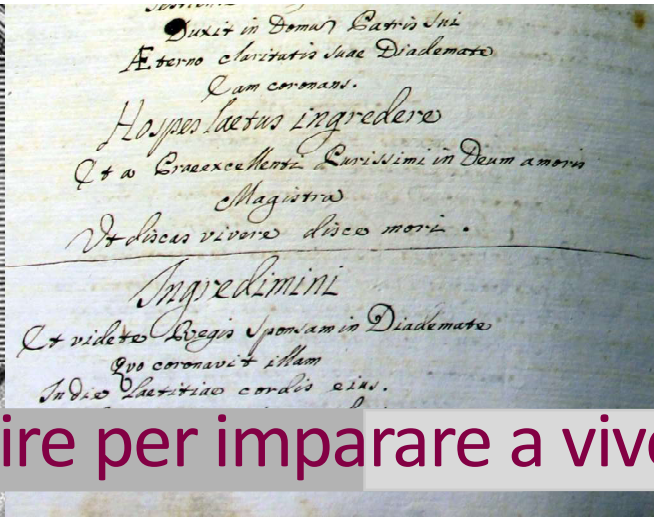 Duxit in Domuȝ Patris Sui
Æterno claritatis suae Diademate
Eam coronans.
Hospes laetus ingredere
Et a Praeexcellenti Purissimi in Deum amoris
Magistra
Ut discas vivere disce mori.
Ingredimini
Et videte Regis Sponsam in Diademate
Quo coronavit illam
In die laetitiae cordis eius.
ire per imparare a vive